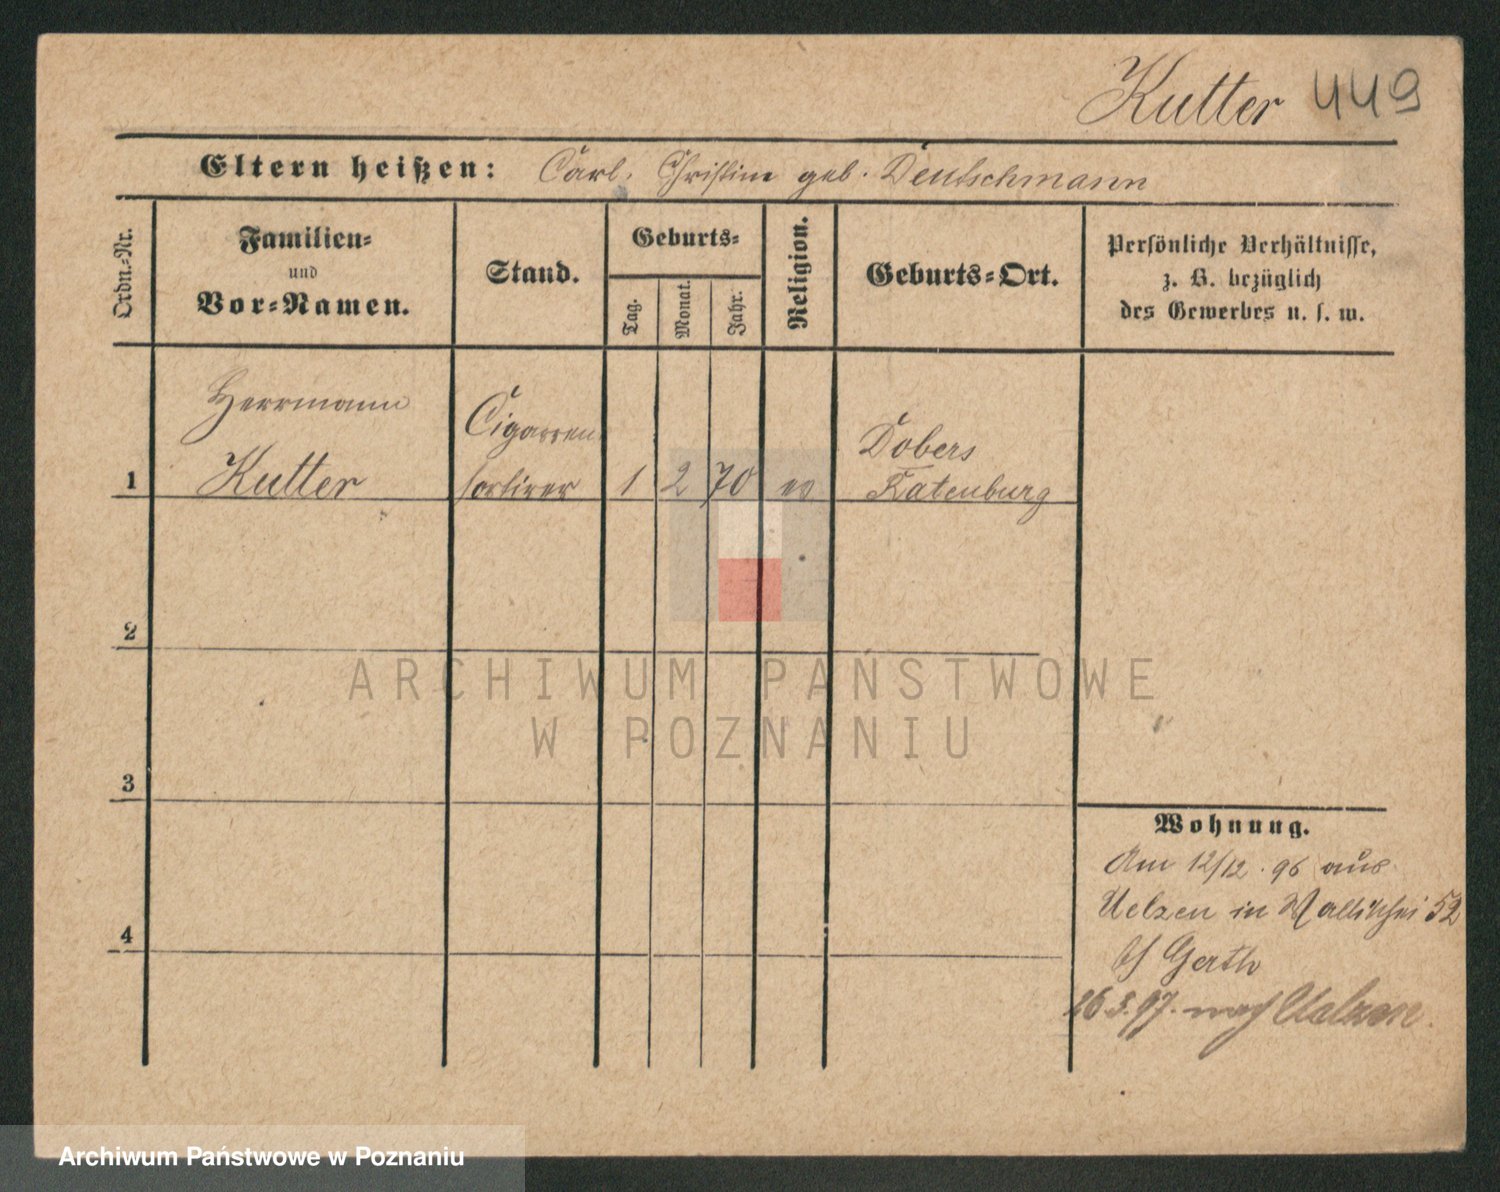 Kutter 449
Eltern heißen: Carl. Christine geb. Deutschmann
Ordn.-Nr.
Familien-
und
Vor-Namen.
Stand.
Geburts-
Tag.
Monat.
Jahr.
Religion.
Geburts-Ort.
Persönliche Verhältnisse,
z. B. bezüglich
des Gewerbes u. s. w.
Herrmann
Kutter
Cigarren
sortirer
1
1 2 70 ev
Dobers
Ratenburg
2
ARCHIWUM PAŃSTWOWE
W POZNANIU
3
4
Wohnung.
Am 12/12. 96 aus
Uelzen in Wallischei 52
b/ Gerth
26.3.97. nach Uelzen.
Archiwum Państwowe w Poznaniu